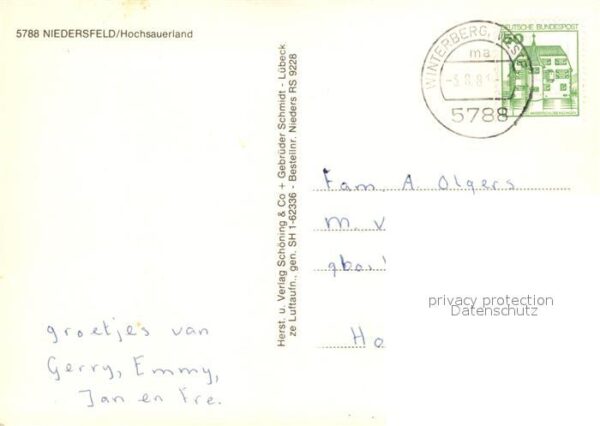 5788 NIEDERSFELD/Hochsauerland
DEUTSCHE BUNDESPOST
WINTERBERG, WESTF
ma
5788
Herst. u. Verlag Schöning & Co + Gebrüder Schmidt - Lübeck
ze Luftaufn., gen. SH 1-62336 - Bestellnr. Nieders RS 9228
Fam. A. Olgers
M. V
Ho
privacy protection
Datenschutz
groetjes van
Gerry, Emmy,
Jan en Fre.